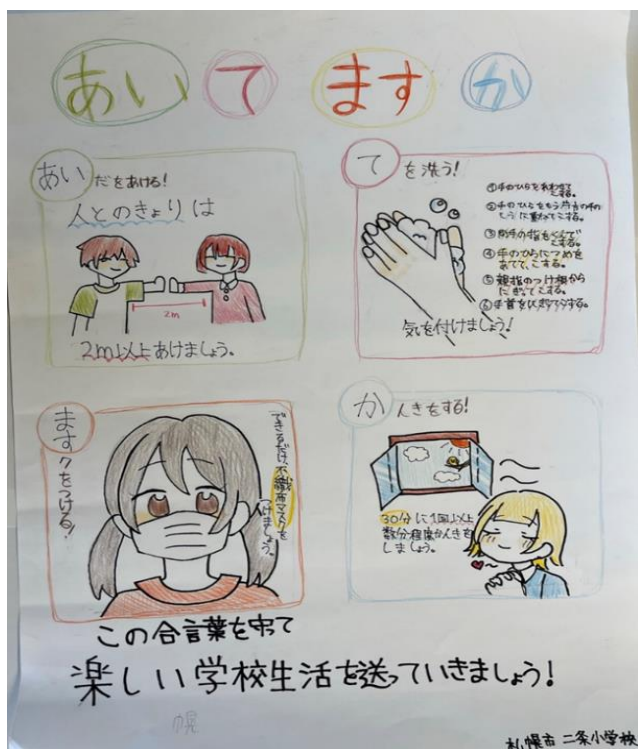 あいてますか
あいだをあける!
人とのきょりは
2m
2m以上あけましょう。
てを洗う!
①手のひらをあわせて
こする。
②手のひらをもう片方の手の
こうに重ねてこする。
③両手の指をくんで
こする。
④手のひらにつめを
あてて、こする。
⑤親指のつけ根から
にぎってこする。
⑥手首をひねりこする。
気を付けましょう!
ますクをつける!
できるだけ、不織布マスクを
つけましょう。
かんきをする!
30分に1回以上
数分程度かんきを
しましょう。
この合言葉を守って
楽しい学校生活を送っていきましょう!
幌
札幌市 二条小学校